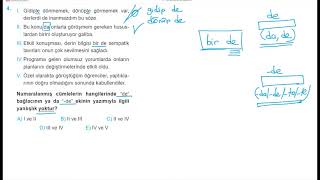 4.
I. Gidipte dönmemek, dönüpte görmemek var, derlerdi de inanmazdım bu söze
II. Bu konuda onlarla görüşmem gereken hususlardan birini oluşturuyor galiba.
III. Etkili konuşması, derin bilgisi bir de sempatik tavırları onun çok sevilmesini sağladı.
IV. Programa gelen olumsuz yorumlarda onların planlarını değiştirmelerinde etkili oldu.
V. Özel olarakta görüştüğüm öğrenciler, yaptıklarının doğru olmadığını sonunda kabullendiler.
Numaralanmış cümlelerin hangilerinde "de" bağlacının ya da "-de" ekinin yazımıyla ilgili yanlışlık yoktur?
A) I ve II
B) I ve IV
C) II ve III
D) III ve V
E) IV ve V
gidip de
dönüp de
bir de
de
(da, de)
-de
(-da/-de/-ta/-te)